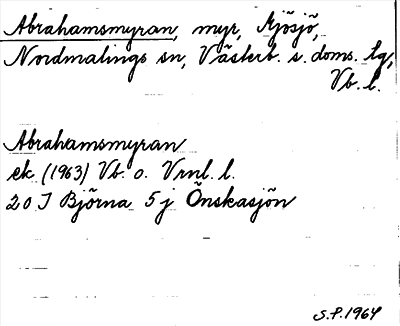 Abrahamsmyran, myr, Mjösjö,
Nordmalings sn, Västerb. s. doms. lg,
Vb. l.
Abrahamsmyran
ek (1963) Vb. o. Vrnl. l.
20 I Björna 5 j Önskasjön
S.P. 1964